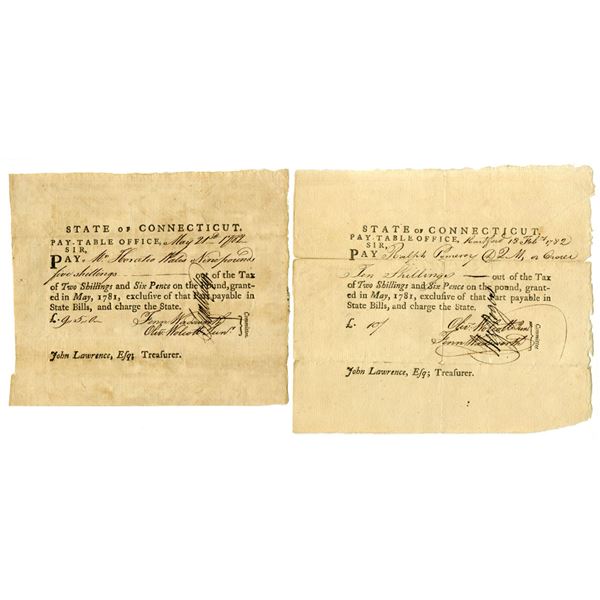 STATE OF CONNECTICUT.
PAY-TABLE OFFICE, May 21st 1782
SIR,
PAY Mr Horatio Wales Nine pounds
five shillings out of the Tax
of Two Shillings and Six Pence on the Pound, grant-
ed in May, 1781, exclusive of that Part payable in
State Bills, and charge the State.
£. 9 5
Fenn Wadsworth
Oliv. Wolcott Junr.
Committee.
John Lawrence, Esq; Treasurer.
STATE OF CONNECTICUT.
PAY-TABLE OFFICE, Hartford 13 Feb 1782
SIR,
PAY Ralph Pomeroy DQM, or Order
Ten Shillings out of the Tax
of Two Shillings and Six Pence on the Pound, grant-
ed in May, 1781, exclusive of that Part payable in
State Bills, and charge the State.
£. 10/
Oliv. Wolcott Jun
Fenn Wadsworth
Committee
John Lawrence, Esq; Treasurer.